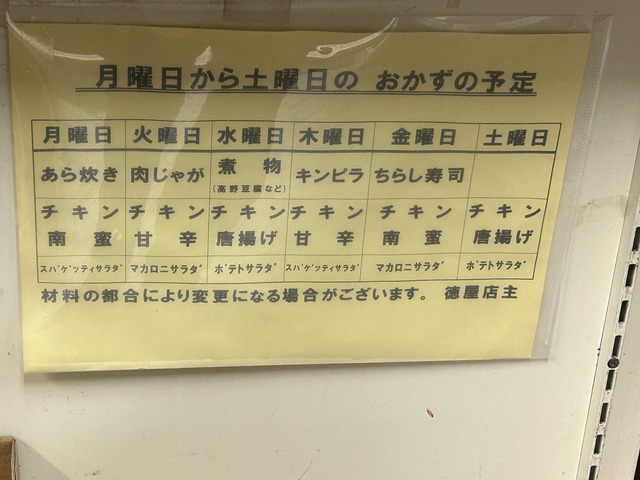 月曜日から土曜日の おかずの予定
月曜日 火曜日 水曜日 木曜日 金曜日 土曜日
あら炊き 肉じゃが 煮物 キンピラ ちらし寿司
(高野豆腐など)
チキン チキン チキン チキン チキン チキン
南蛮 甘辛 唐揚げ 甘辛 南蛮 唐揚げ
スパゲッティサラダ マカロニサラダ ポテトサラダ スパゲッティサラダ マカロニサラダ ポテトサラダ
材料の都合により変更になる場合がございます。 徳屋店主